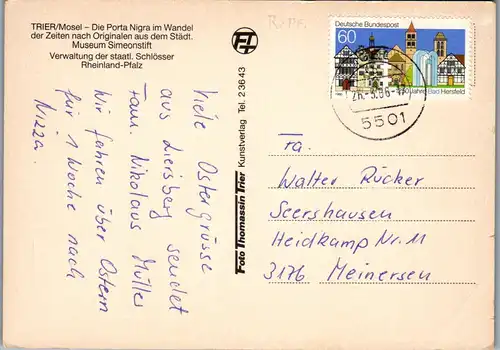 TRIER/Mosel – Die Porta Nigra im Wandel
der Zeiten nach Originalen aus dem Städt.
Museum Simeonstift
Verwaltung der staatl. Schlösser
Rheinland-Pfalz
Viele Ostergrüsse
aus Liersberg sendet
Fam. Nikolaus Müller
Wir fahren über Ostern
für 1 Woche nach
Nizza.
Foto Thomassin Trier Kunstverlag Tel. 23643
R.-Pf.
Deutsche Bundespost
60
Jahre Bad Hersfeld
26.-3.86
5501
Fa.
Walter Rücker
Seershausen
Heidkamp Nr. 11
3176 Meinersen